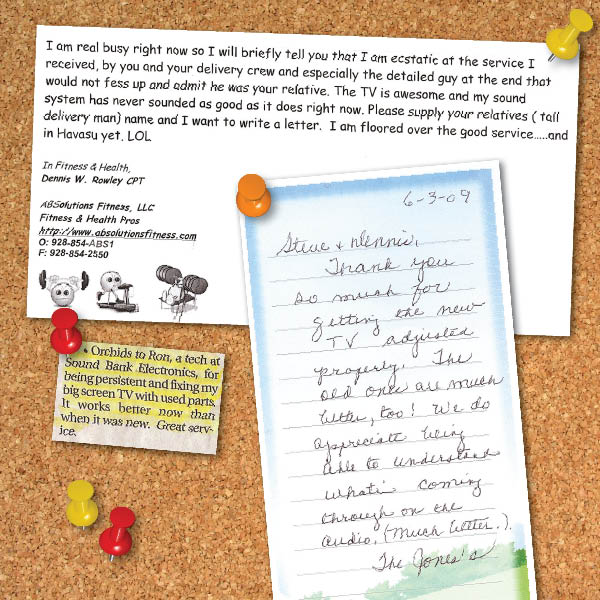 I am real busy right now so I will briefly tell you that I am ecstatic at the service I
received, by you and your delivery crew and especially the detailed guy at the end that
would not fess up and admit he was your relative. The TV is awesome and my sound
system has never sounded as good as it does right now. Please supply your relatives ( tall
delivery man) name and I want to write a letter. I am floored over the good service.....and
in Havasu yet. LOL
In Fitness & Health,
Dennis W. Rowley CPT
ABSolutions Fitness, LLC
Fitness & Health Pros
http://www.absolutionsfitness.com
O: 928-854-ABS1
F: 928-854-2550
• Orchids to Ron, a tech at
Sound Bank Electronics, for
being persistent and fixing my
big screen TV with used parts.
It works better now than
when it was new. Great serv-
ice.
6-3-09
Steve & Dennis,
Thank you
so much for
getting the new
TV adjusted
properly. The
old one are much
better, too! We do
appreciate being
able to understand
what's coming
through on the
audio. (Much better.).
The Jones's